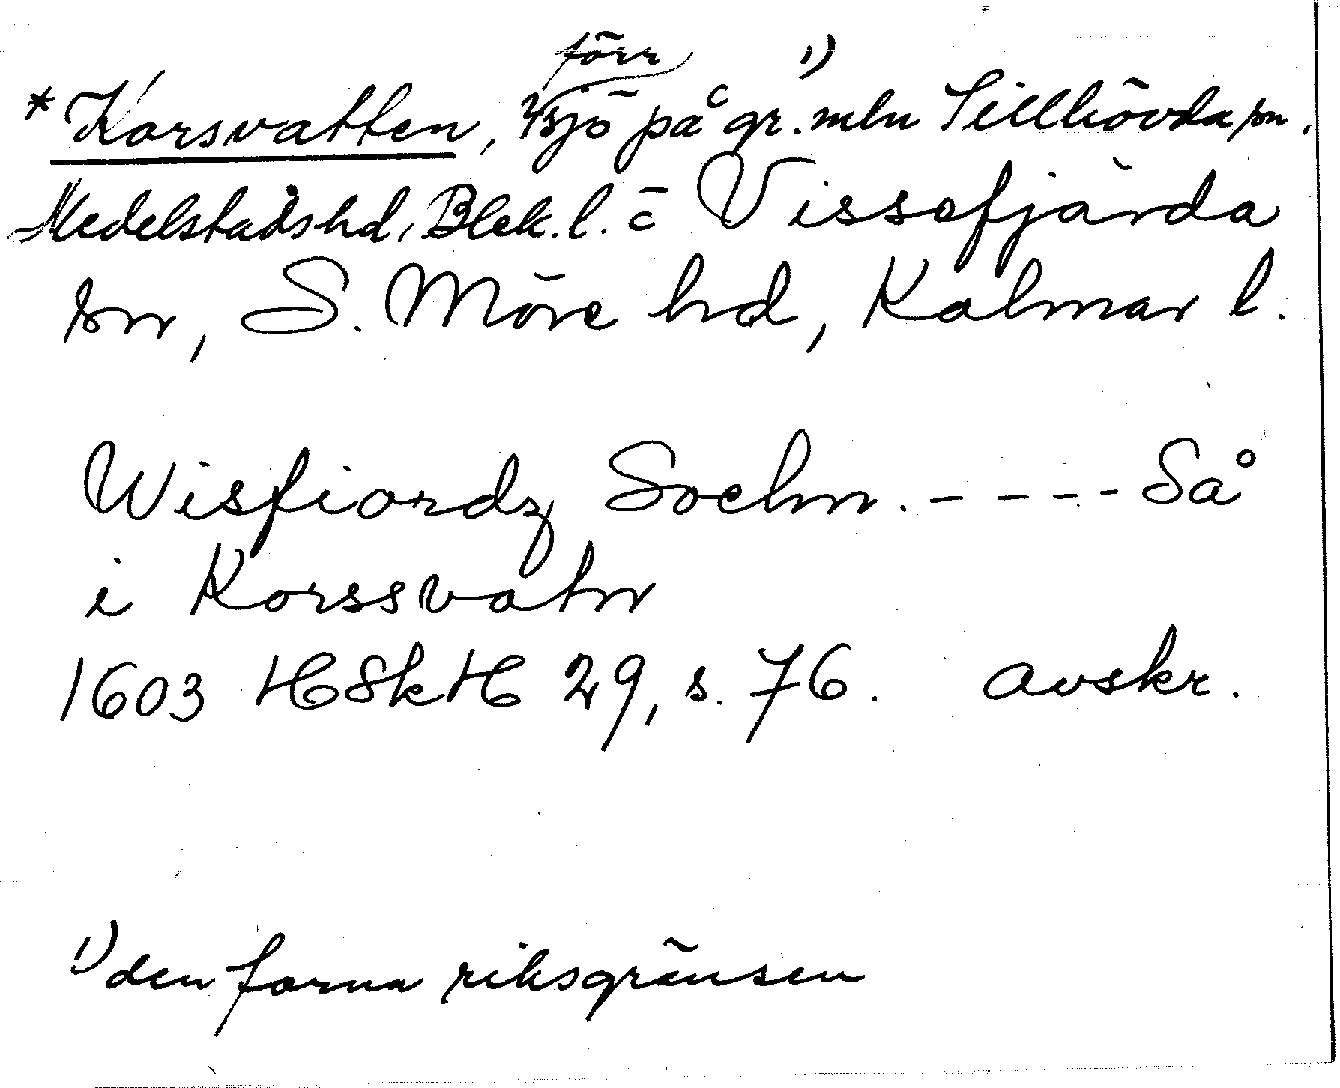 förr 1)
* Korsvatten, sjö på gr. mln Tillhövda sn.
Medelstads hd, Blek. l. o Vissefjärda
sn, S. Möre hd, Kalmar l.
Wisfiordz Sochn. - - - - Så
i Korssvatn
1603 HSkH 29, s. 76. avskr.
1) den forna riksgränsen